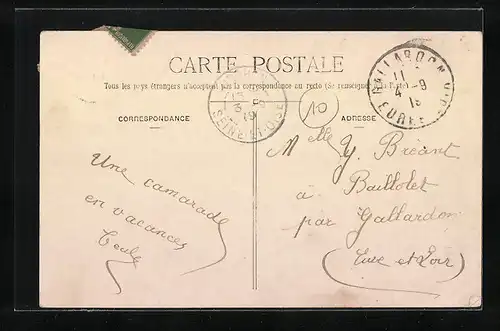 CARTE POSTALE
Tous les pays étrangers n'acceptent pas la correspondance au recto (Se renseigner à la Poste)
CORRESPONDANCE
ADRESSE
SEINE-ET-OISE
GALLARDON
11
4-9
EURE
10
Une camarade
en vacances
Melle Y. Bréant
à Baillolet
par Gallardon
(Eure et Loir)